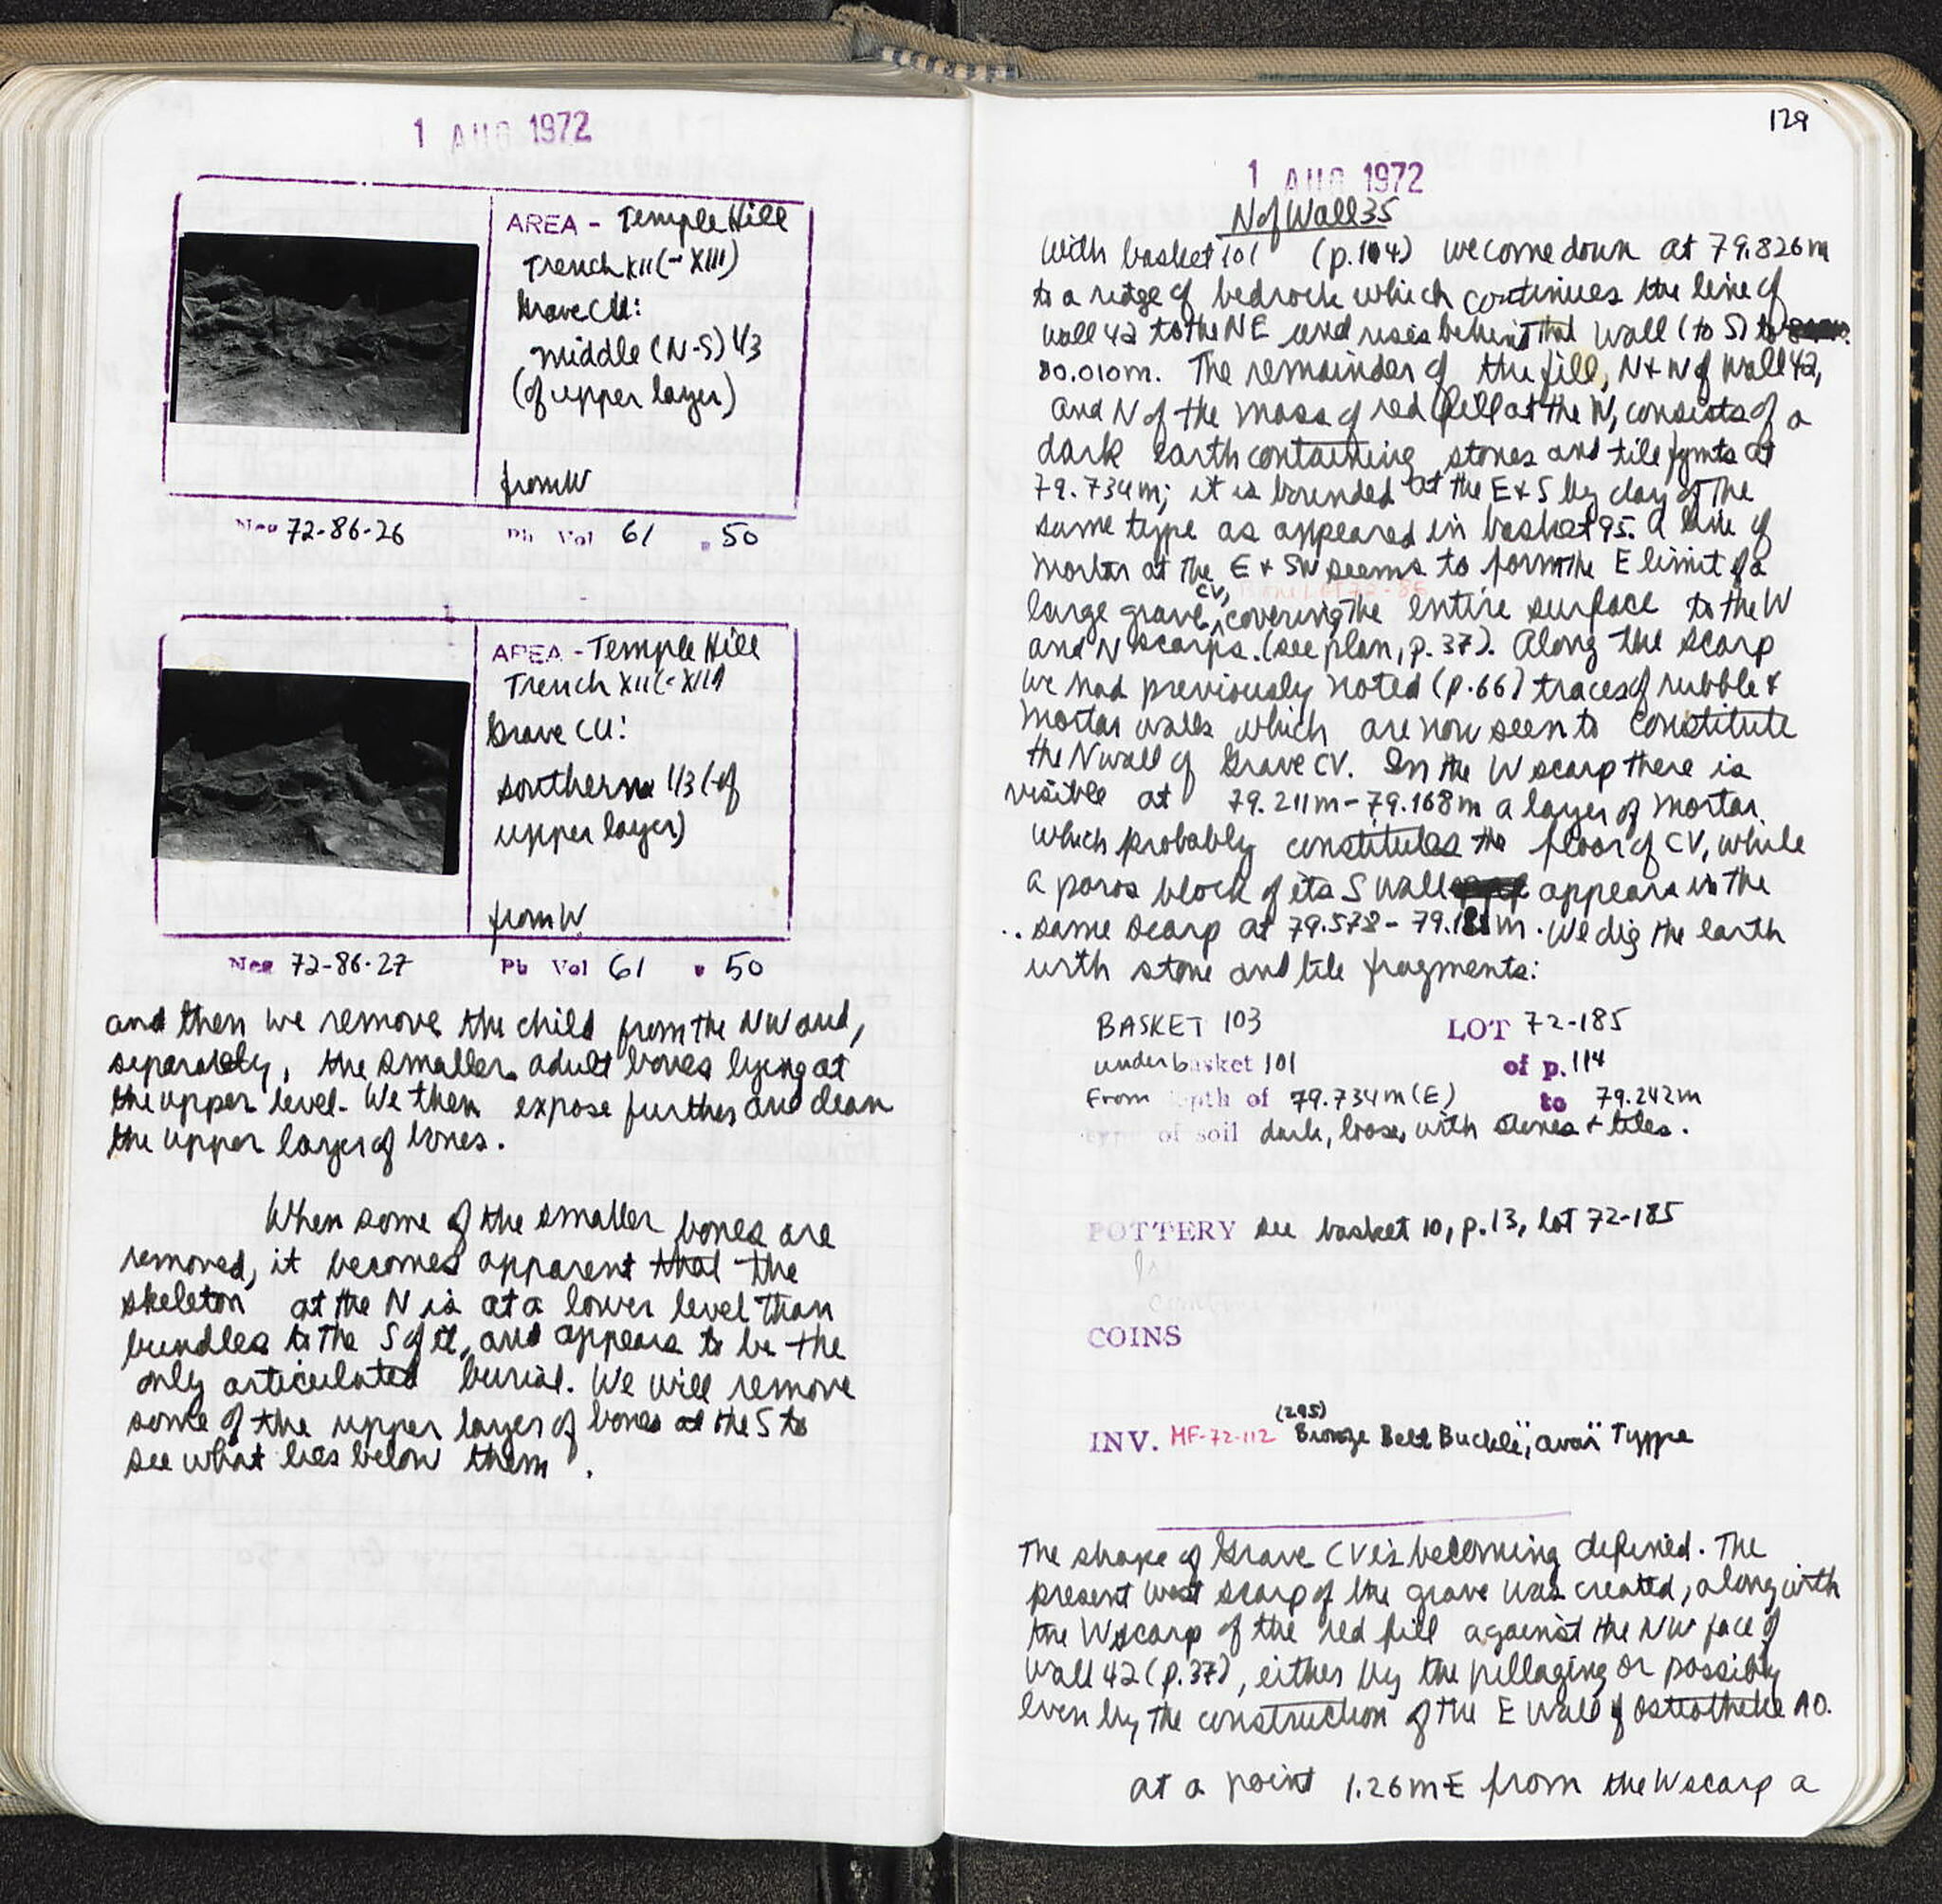 1 AUG 1972
AREA - Temple Hill
Trench XII (-XIII)
Grave CU:
middle (N-S) 1/3
(of upper layer)
from W
Neg 72-86-26 Ph Vol 61 p 50
AREA - Temple Hill
Trench XII (-XIII)
Grave CU:
southern 1/3 (of
upper layer)
from W
Neg 72-86-27 Ph Vol 61 p 50
and then we remove the child from the NW and,
separately, the smaller adult bones lying at
the upper level. We then expose further and clean
the upper layer of bones.
When some of the smaller bones are
removed, it becomes apparent that the
skeleton at the N is at a lower level than
bundles to the S of it, and appears to be the
only articulated burial. We will remove
some of the upper layer of bones at the S to
see what lies below them.
129
1 AUG 1972
N of Wall 35
With basket 101 (p.114) we come down at 79.826m
to a ridge of bedrock which continues the line of
wall 42 to the NE and rises behind that wall (to S) to
80.010m. The remainder of the fill, N + W of Wall 42,
and N of the mass of red fill at the W, consists of a
dark earth containing stones and tile fgmts at
79.734m; it is bounded at the E & S by clay of the
same type as appeared in basket 95. A line of
mortar at the E & SW seems to form the E limit of a
CV, Bone Lot 72-86
large grave, covering the entire surface to the W
and N scarps. (see plan, p. 37). Along the scarp
we had previously noted (p.66) traces of rubble &
mortar walls which are now seen to constitute
the N wall of Grave CV. In the W scarp there is
visible at 79.211m - 79.168m a layer of mortar
which probably constitutes the floor of CV, while
a poros block of its S wall appears in the
same scarp at 79.578 - m. We dig the earth
with stone and tile fragments:
BASKET 103 LOT 72-185
under basket 101 of p.114
From depth of 79.734m (E) to 79.242m
type of soil dark, loose, with stones + tiles.
POTTERY see basket 10, p.13, lot 72-185
COINS
(295)
INV. MF-72-112 Bronze Belt Buckle, "avar" Type
The shape of Grave CV is becoming defined. The
present west scarp of the grave was created, along with
the W scarp of the red fill against the NW face of
wall 42 (p.37), either by the pillaging or possibly
even by the construction of the E wall of Osteotheke AO.
at a point 1.26m E from the W scarp a